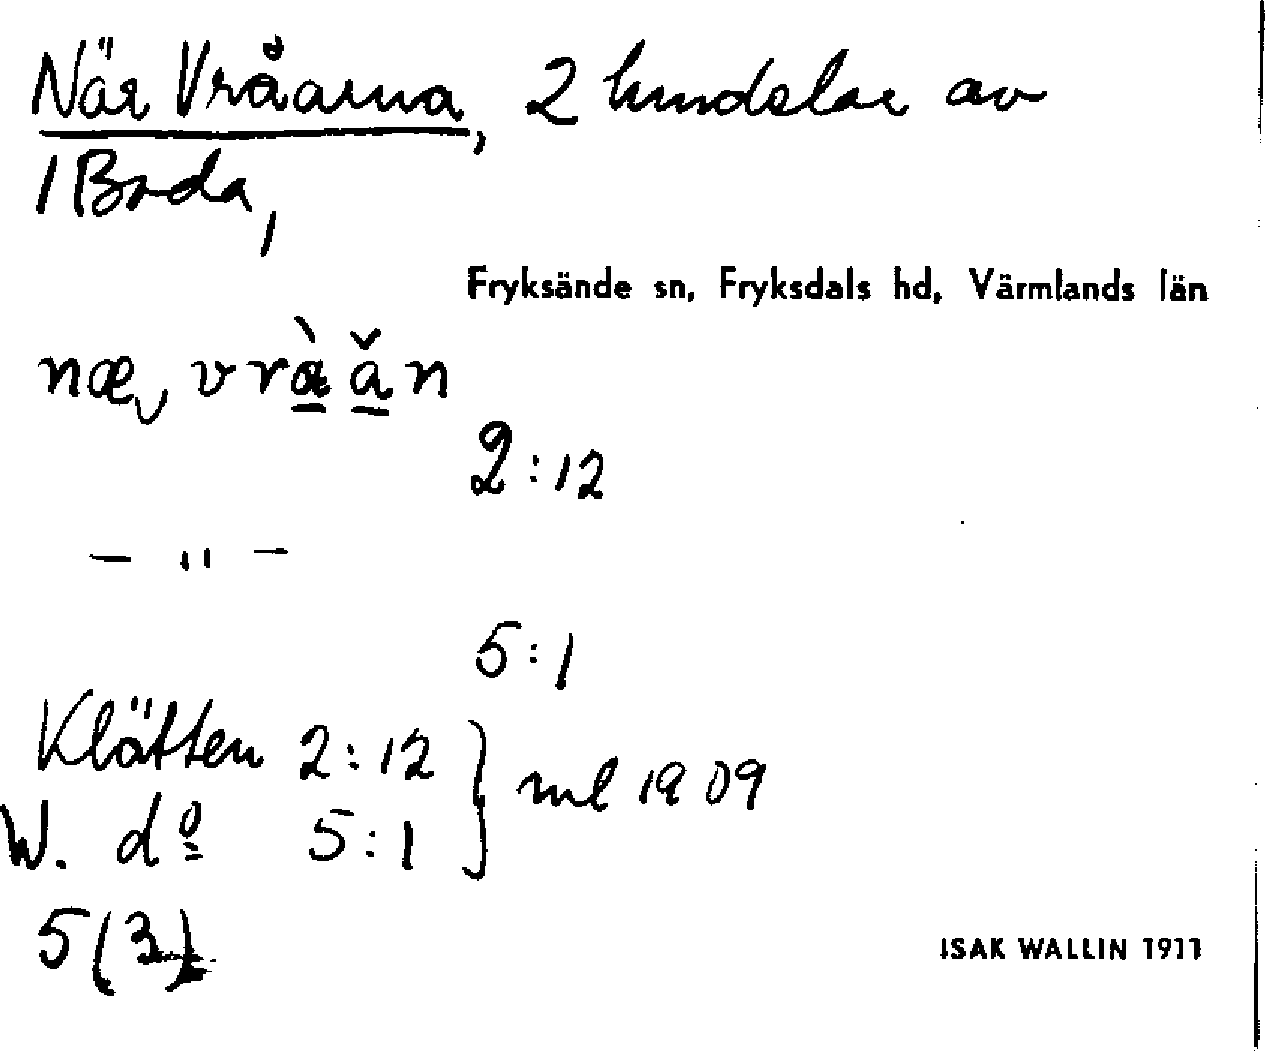 När Vråarna, 2 hemdelar av
1 Boda,
Fryksände sn, Fryksdals hd, Värmlands län
næ, vrà̱ǎ̱n
2:12
— " —
5:1
Klätten 2:12 } ml 1909
W. dº 5:1
5(3)
ISAK WALLIN 1911